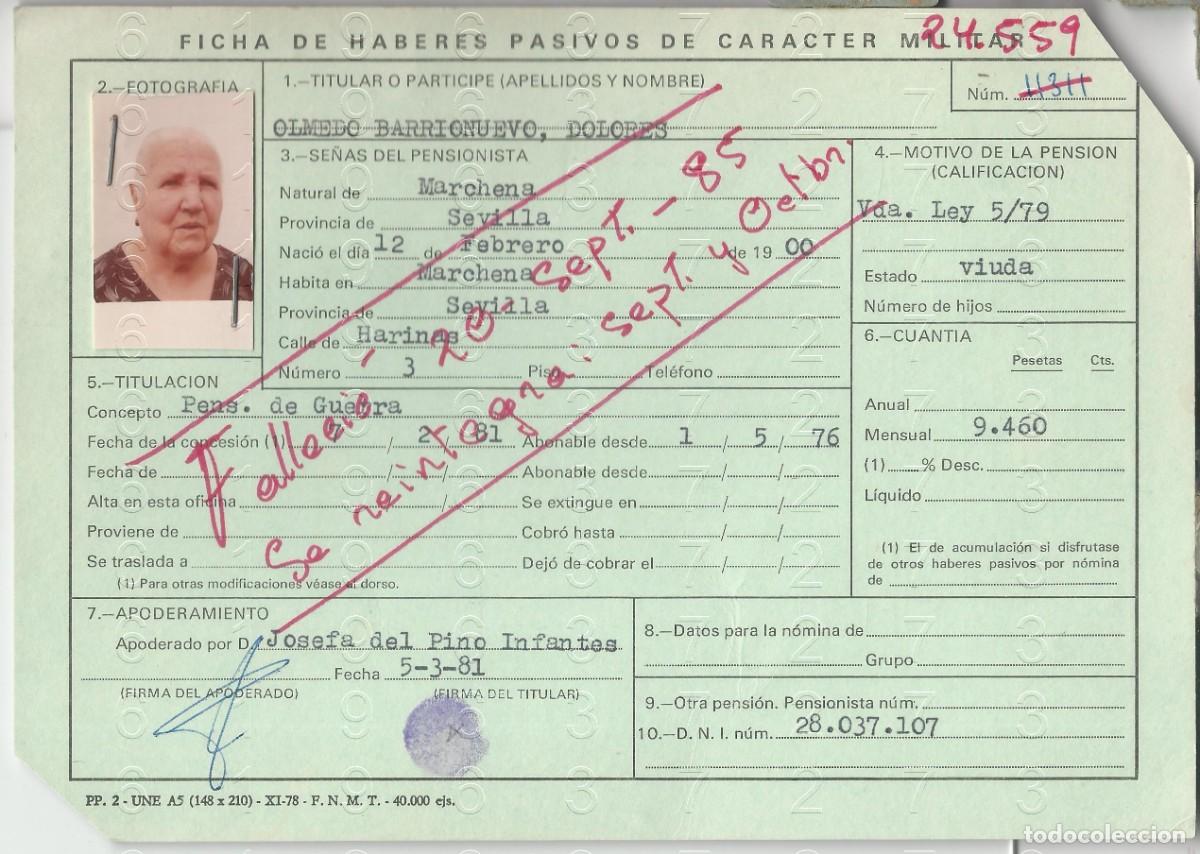 FICHA DE HABERES PASIVOS DE CARACTER MILITAR
24.559
2.—FOTOGRAFIA
1.—TITULAR O PARTICIPE (APELLIDOS Y NOMBRE)
Núm. 11311
OLMEDO BARRIONUEVO, DOLORES
3.—SEÑAS DEL PENSIONISTA
Natural de Marchena
Provincia de Sevilla
Nació el día 12 de Febrero de 19 00
Habita en Marchena
Provincia de Sevilla
Calle de Harinas
Número 3 Piso Teléfono
4.—MOTIVO DE LA PENSION
(CALIFICACION)
Vda. Ley 5/79
Estado viuda
Número de hijos
5.—TITULACION
Concepto Pens. de Guerra
Fecha de la concesión (1) / 2 / 81 Abonable desde 1 / 5 / 76
Fecha de / / Abonable desde / /
Alta en esta oficina Se extingue en / /
Proviene de Cobró hasta / /
Se traslada a Dejó de cobrar el / /
(1) Para otras modificaciones véase al dorso.
Fallecio - 20 - Sept. - 85
Se reintegra: sept. y Octbr.
6.—CUANTIA
Pesetas Cts.
Anual
Mensual 9.460
(1) % Desc.
Líquido
(1) El de acumulación si disfrutase
de otros haberes pasivos por nómina
de
7.—APODERAMIENTO
Apoderado por D. Josefa del Pino Infantes
Fecha 5-3-81
(FIRMA DEL APODERADO) (FIRMA DEL TITULAR)
8.—Datos para la nómina de
Grupo
9.—Otra pensión. Pensionista núm.
10.—D. N. I. núm. 28.037.107
PP. 2 - UNE A5 (148 x 210) - XI-78 - F. N. M. T. - 40.000 ejs.
todocoleccion